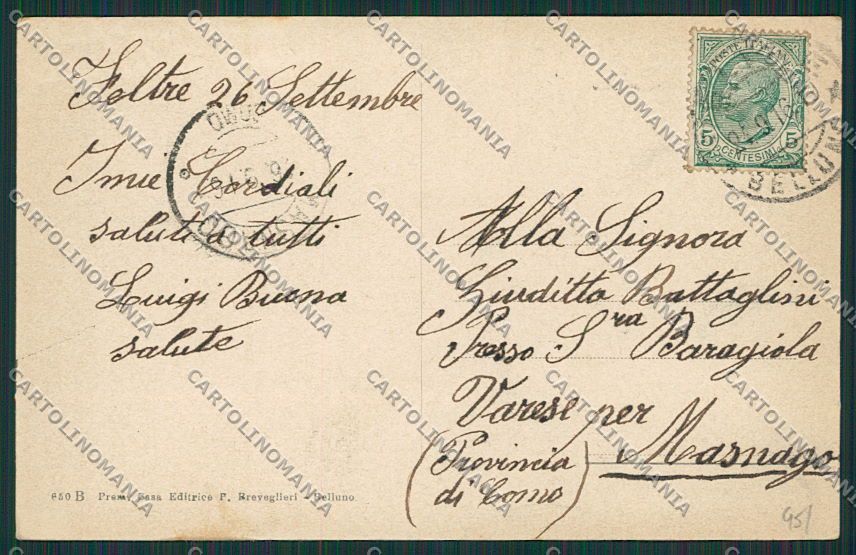 Feltre 26 Settembre
I miei Cordiali
saluti a tutti
Luigi Buona
salute
650 B Prem. Casa Editrice P. Breveglieri - Belluno
POSTE ITALIANE
5 5
CENTESINI
BELLUNO
Alla Signora
Giuditta Battaglini
Presso S.ra Baragiola
Varese per
Masnago
(Provincia
di Como)
45/
CARTOLINOMANIA